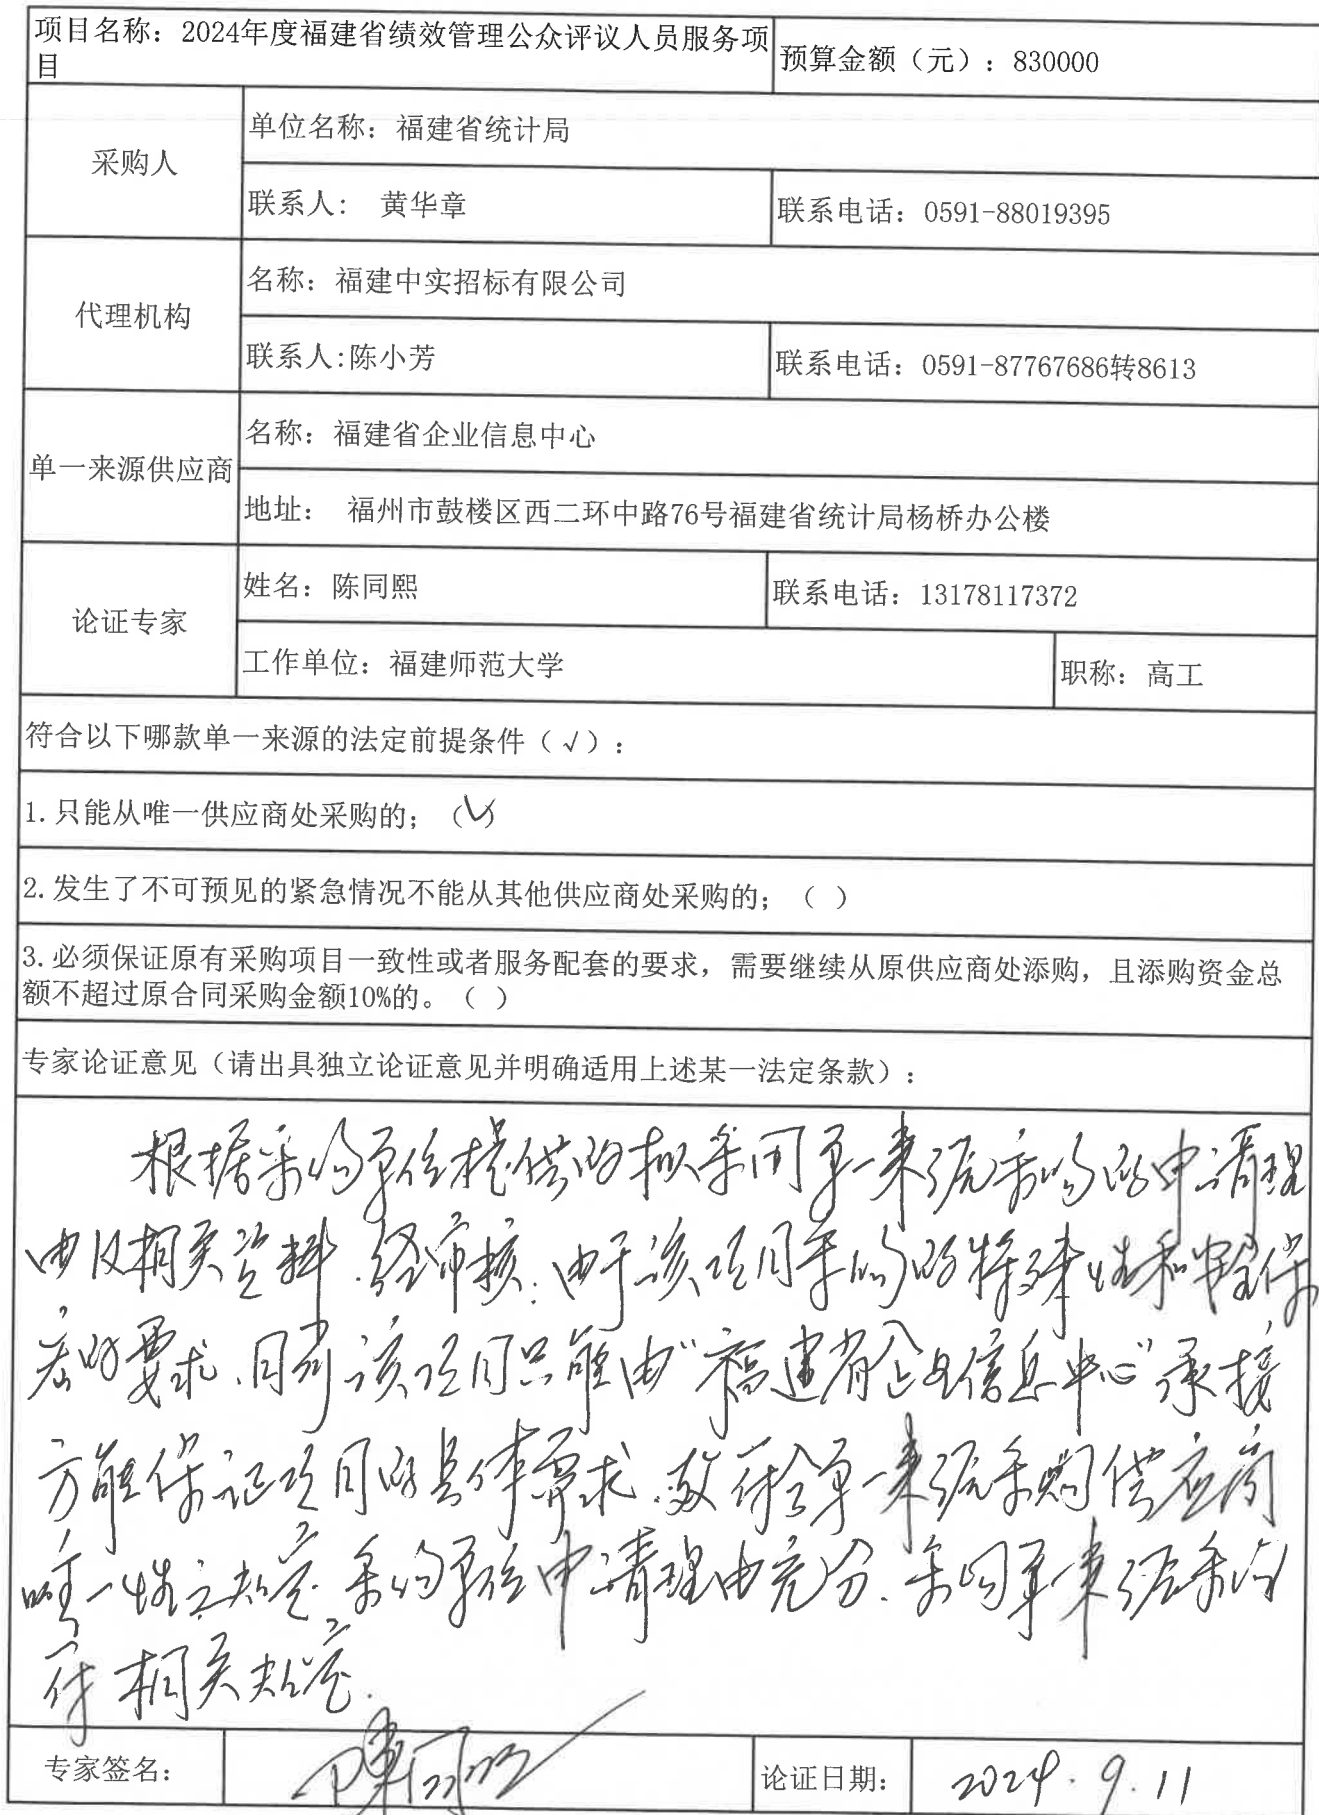 项目名称：2024年度福建省绩效管理公众评议人员服务项
目
预算金额（元）：830000
采购人
单位名称：福建省统计局
联系人： 黄华章
联系电话：0591-88019395
代理机构
名称：福建中实招标有限公司
联系人:陈小芳
联系电话：0591-87767686转8613
单一来源供应商
名称：福建省企业信息中心
地址： 福州市鼓楼区西二环中路76号福建省统计局杨桥办公楼
论证专家
姓名：陈同熙
联系电话：13178117372
工作单位：福建师范大学
职称：高工
符合以下哪款单一来源的法定前提条件（√）：
1.只能从唯一供应商处采购的；（√）
2.发生了不可预见的紧急情况不能从其他供应商处采购的；（ ）
3.必须保证原有采购项目一致性或者服务配套的要求，需要继续从原供应商处添购，且添购资金总
额不超过原合同采购金额10%的。（ ）
专家论证意见（请出具独立论证意见并明确适用上述某一法定条款）：
根据采购单位提供的拟采用单一来源采购的申请理
由及相关资料，经审核：由于该项目采购的特殊性和安全保
密的要求，同时该项目只能由“福建省企业信息中心”承接
方能保证项目的具体要求，故符合单一来源采购供应商
唯一性之规定，采购单位申请理由充分，采用单一来源采购
符相关规定.
专家签名：
陈同熙
论证日期：
2024.9.11